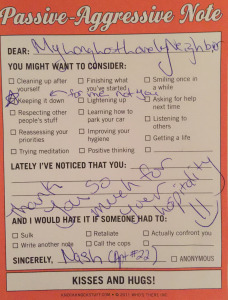 Passive-Aggressive Note
DEAR: My Long Lost Lovely Neighbor
YOU MIGHT WANT TO CONSIDER:
Cleaning up after yourself
Finishing what you've started
Smiling once in a while
Keeping it down
for me, not you
Lightening up
Asking for help next time
Respecting other people's stuff
Learning how to park your car
Listening to others
Reassessing your priorities
Improving your hygiene
Getting a life
Trying meditation
Positive thinking
LATELY I'VE NOTICED THAT YOU:
thank you so much for your hospitality
AND I WOULD HATE IF IF SOMEONE HAD TO:
Sulk
Retaliate
Actually confront you
Write another note
Call the cops
SINCERELY, Nash (Apt #22)
ANONYMOUS
KISSES AND HUGS!